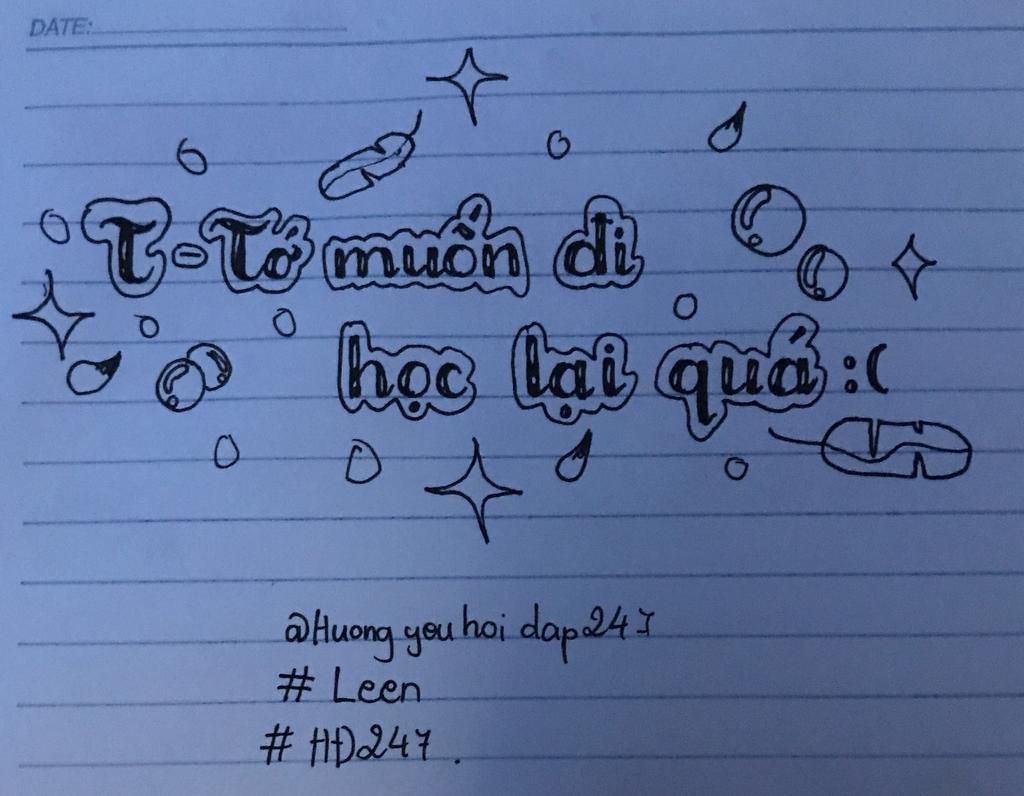 DATE:
T-Tớ muốn đi
học lại quá :(
@Huong you hoi dap247
# Leen
# HĐ247.